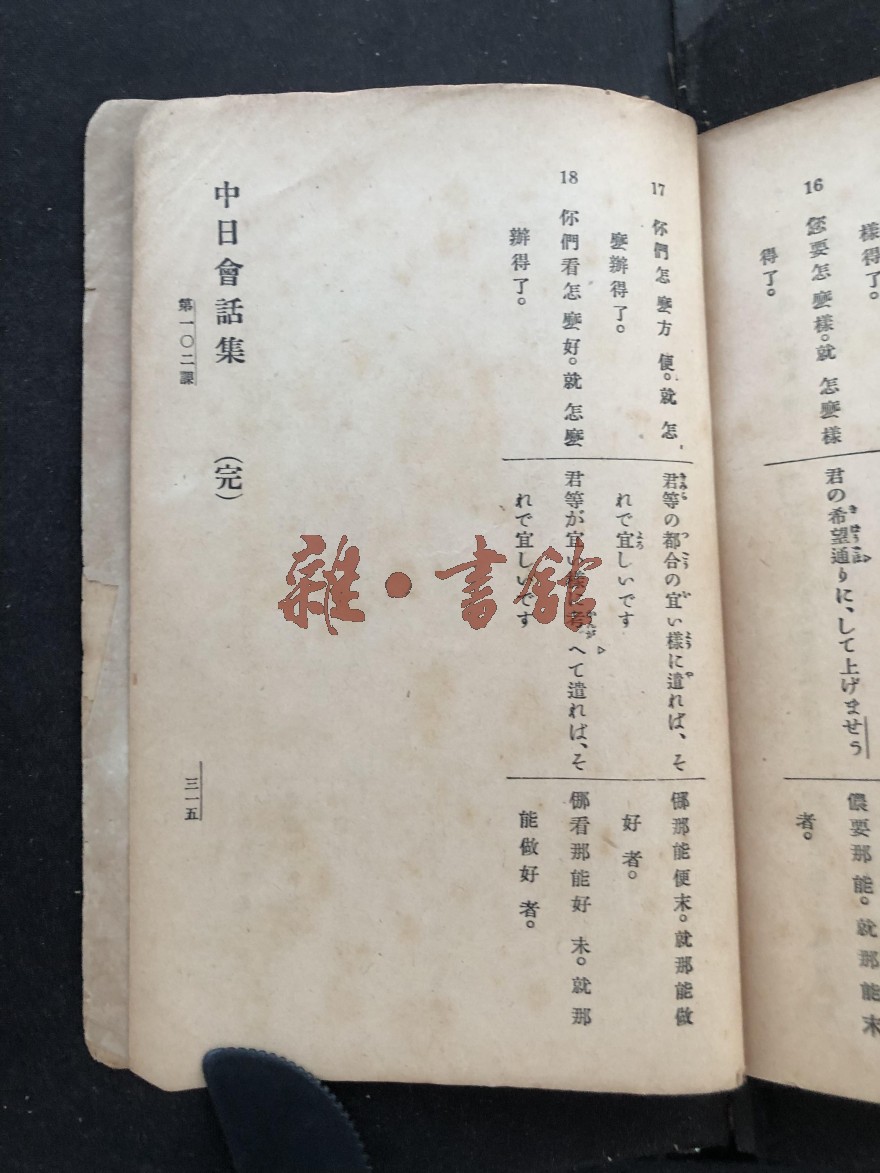 樣得了。
16 您要怎麼樣。就 怎麼樣
得了。
君の希望通りに、して上げませう
儂要那能。就那能末
者。
17 你們怎麼方 便。就 怎
麼辦得了。
18 你們看怎麼好。就 怎麼
辦得了。
君等の都合の宜い樣に遣れば、そ
れで宜しいです
君等が宜い樣に考へて遣れば、そ
れで宜しいです
㑚那能便末。就那能做
好 者。
㑚看那能好 末。就那
能做好 者。
中日會話集 (完)
第一〇二課
三一五
雜·書館